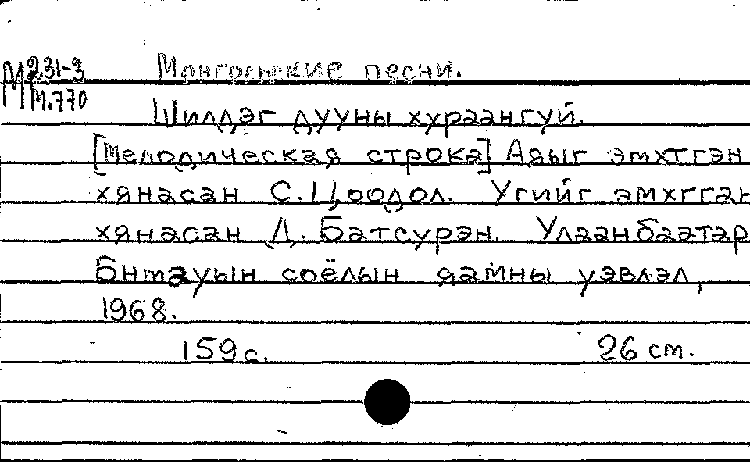 М 231-3
М.770
Монгольские песни.
Шилдэг дууны хураангуй.
[Мелодическая строка] Аяыг эмхтгэн
хянасан С. Цоодол. Угийг эмхгган
хянасан Д. Батсурэн. Улаанбаатар
Бнтауын соёлын яамны уэвлэл,
1968.
159с. 26 cm.